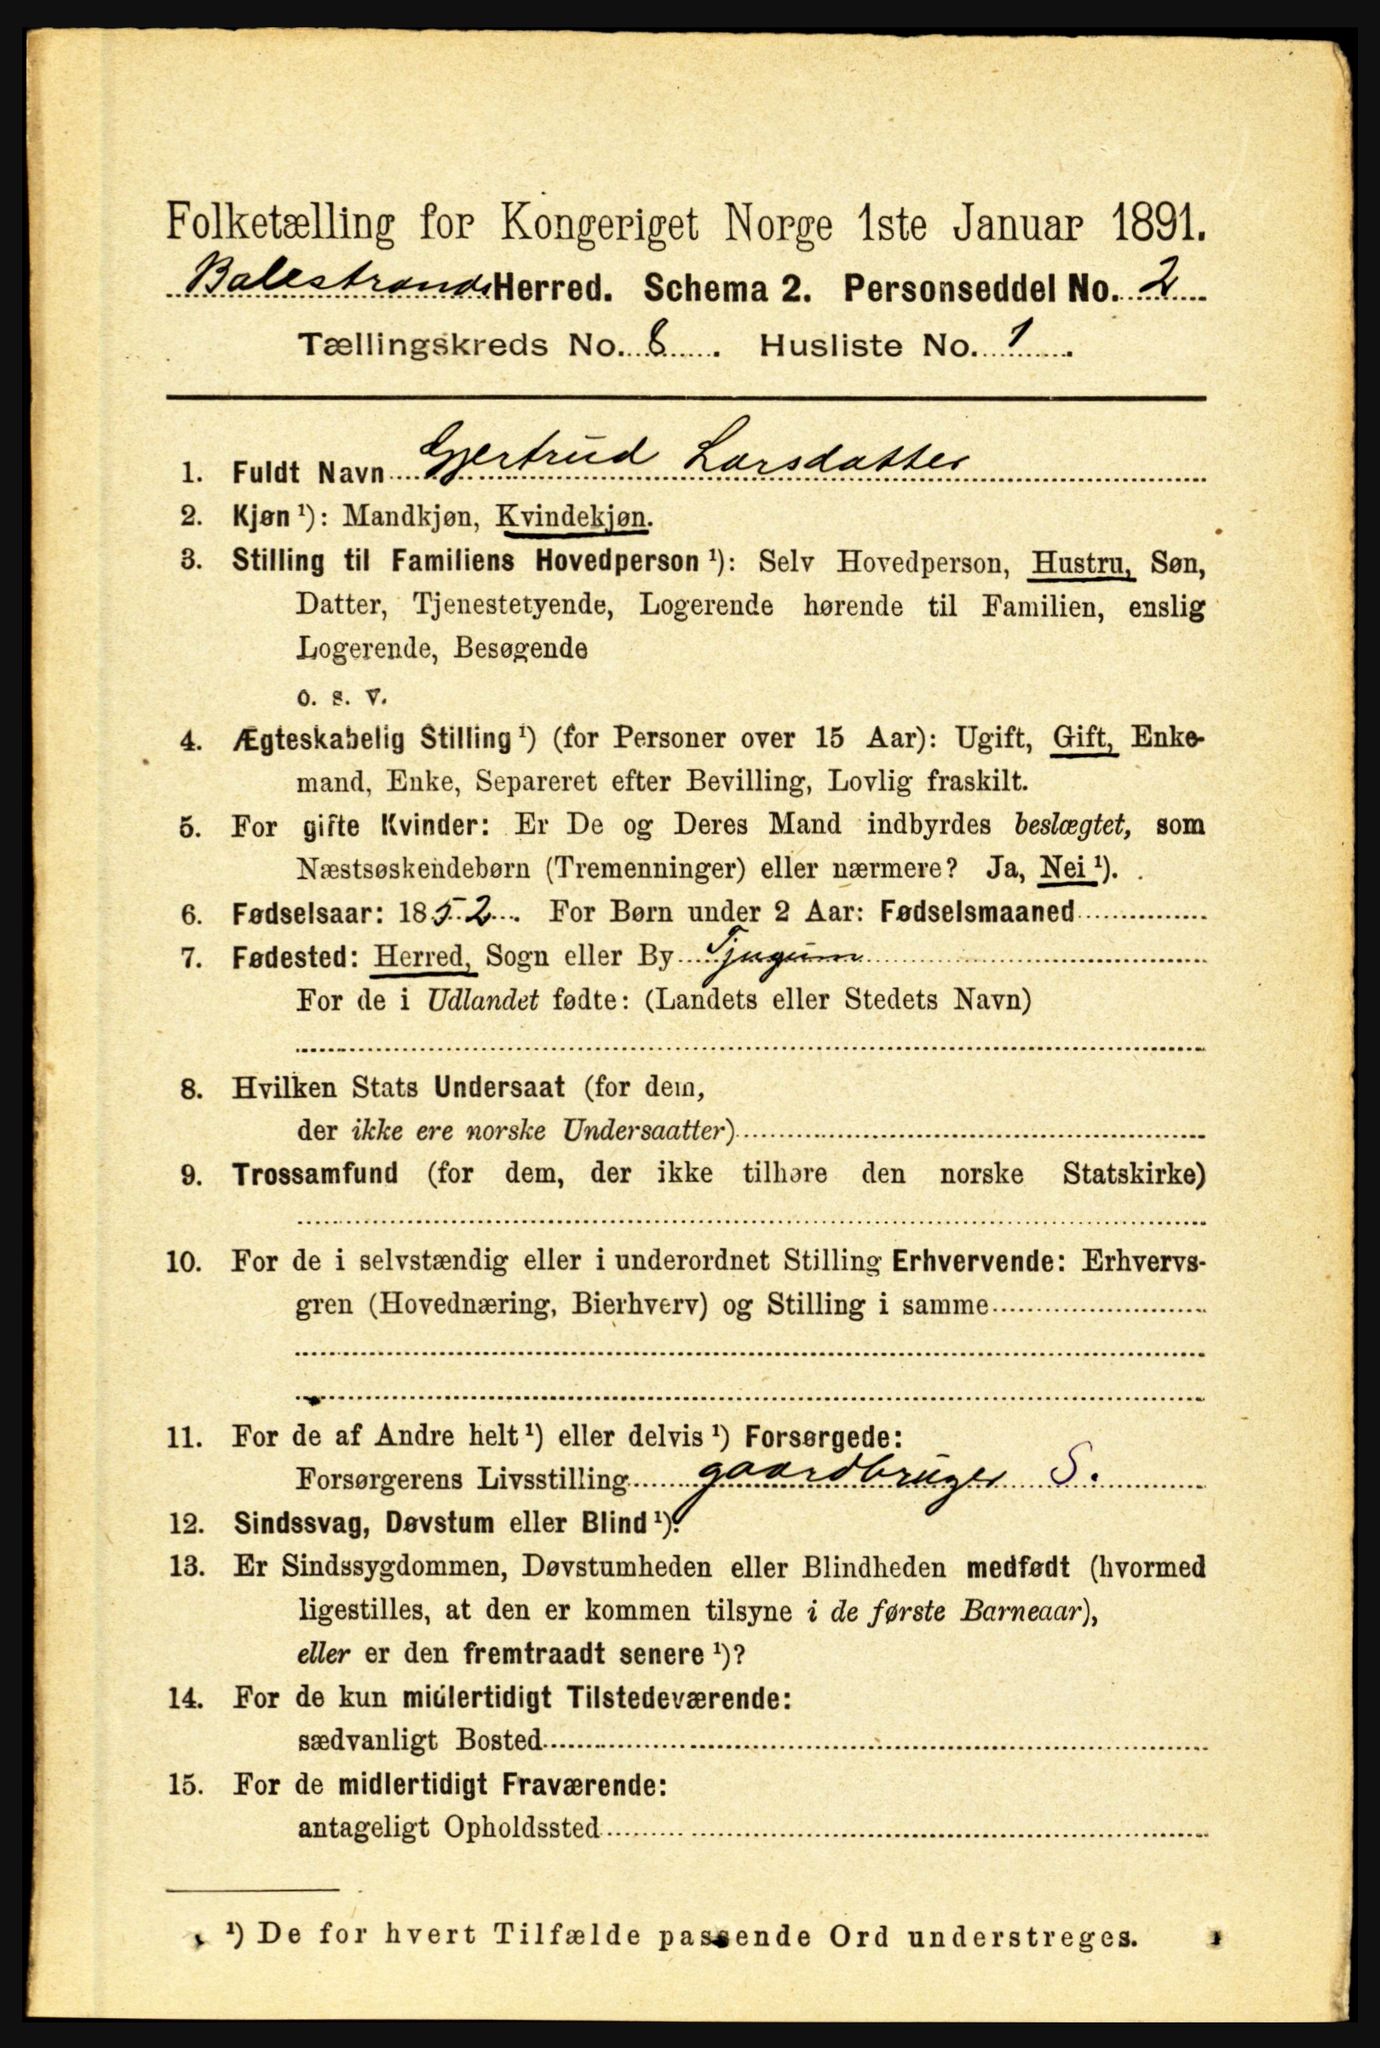 Folketælling for Kongeriget Norge 1ste Januar 1891.
Balestrands Herred. Schema 2. Personseddel No. 2
Tællingskreds No. 8. Husliste No. 1.
1. Fuldt Navn Gjertrud Larsdatter
2. Kjøn ¹): Mandkjøn, Kvindekjøn.
3. Stilling til Familiens Hovedperson ¹): Selv Hovedperson, Hustru, Søn,
Datter, Tjenestetyende, Logerende hørende til Familien, enslig
Logerende, Besøgende
o. s. v.
4. Ægteskabelig Stilling ¹) (for Personer over 15 Aar): Ugift, Gift, Enke-
mand, Enke, Separeret efter Bevilling, Lovlig fraskilt.
5. For gifte Kvinder: Er De og Deres Mand indbyrdes beslægtet, som
Næstsøskendebørn (Tremenninger) eller nærmere? Ja, Nei ¹).
6. Fødselsaar: 1852. For Børn under 2 Aar: Fødselsmaaned
7. Fødested: Herred, Sogn eller By Tjugum
For de i Udlandet fødte: (Landets eller Stedets Navn)
8. Hvilken Stats Undersaat (for dem,
der ikke ere norske Undersaatter)
9. Trossamfund (for dem, der ikke tilhøre den norske Statskirke)
10. For de i selvstændig eller i underordnet Stilling Erhvervende: Erhvervs-
gren (Hovednæring, Bierhverv) og Stilling i samme
11. For de af Andre helt ¹) eller delvis ¹) Forsørgede:
Forsørgerens Livsstilling gaardbruger S.
12. Sindssvag, Døvstum eller Blind ¹).
13. Er Sindssygdommen, Døvstumheden eller Blindheden medfødt (hvormed
ligestilles, at den er kommen tilsyne i de første Barneaar),
eller er den fremtraadt senere ¹)?
14. For de kun midlertidigt Tilstedeværende:
sædvanligt Bosted
15. For de midlertidigt Fraværende:
antageligt Opholdssted
¹) De for hvert Tilfælde passende Ord understreges.